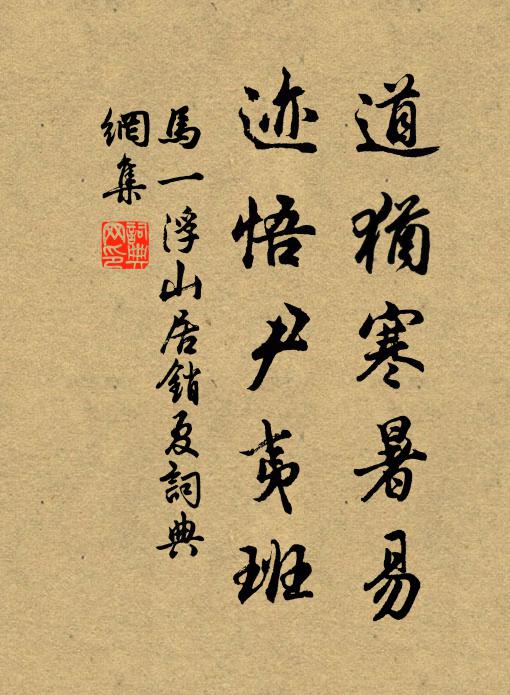 道猶寒暑易
迹悟尹夷班
馬一浮山居銷夏詞典
網集
詞典網印